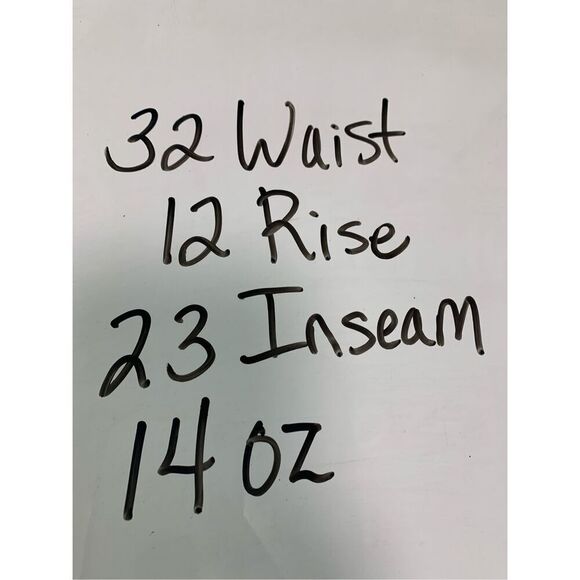 32 Waist
12 Rise
23 Inseam
14 oz